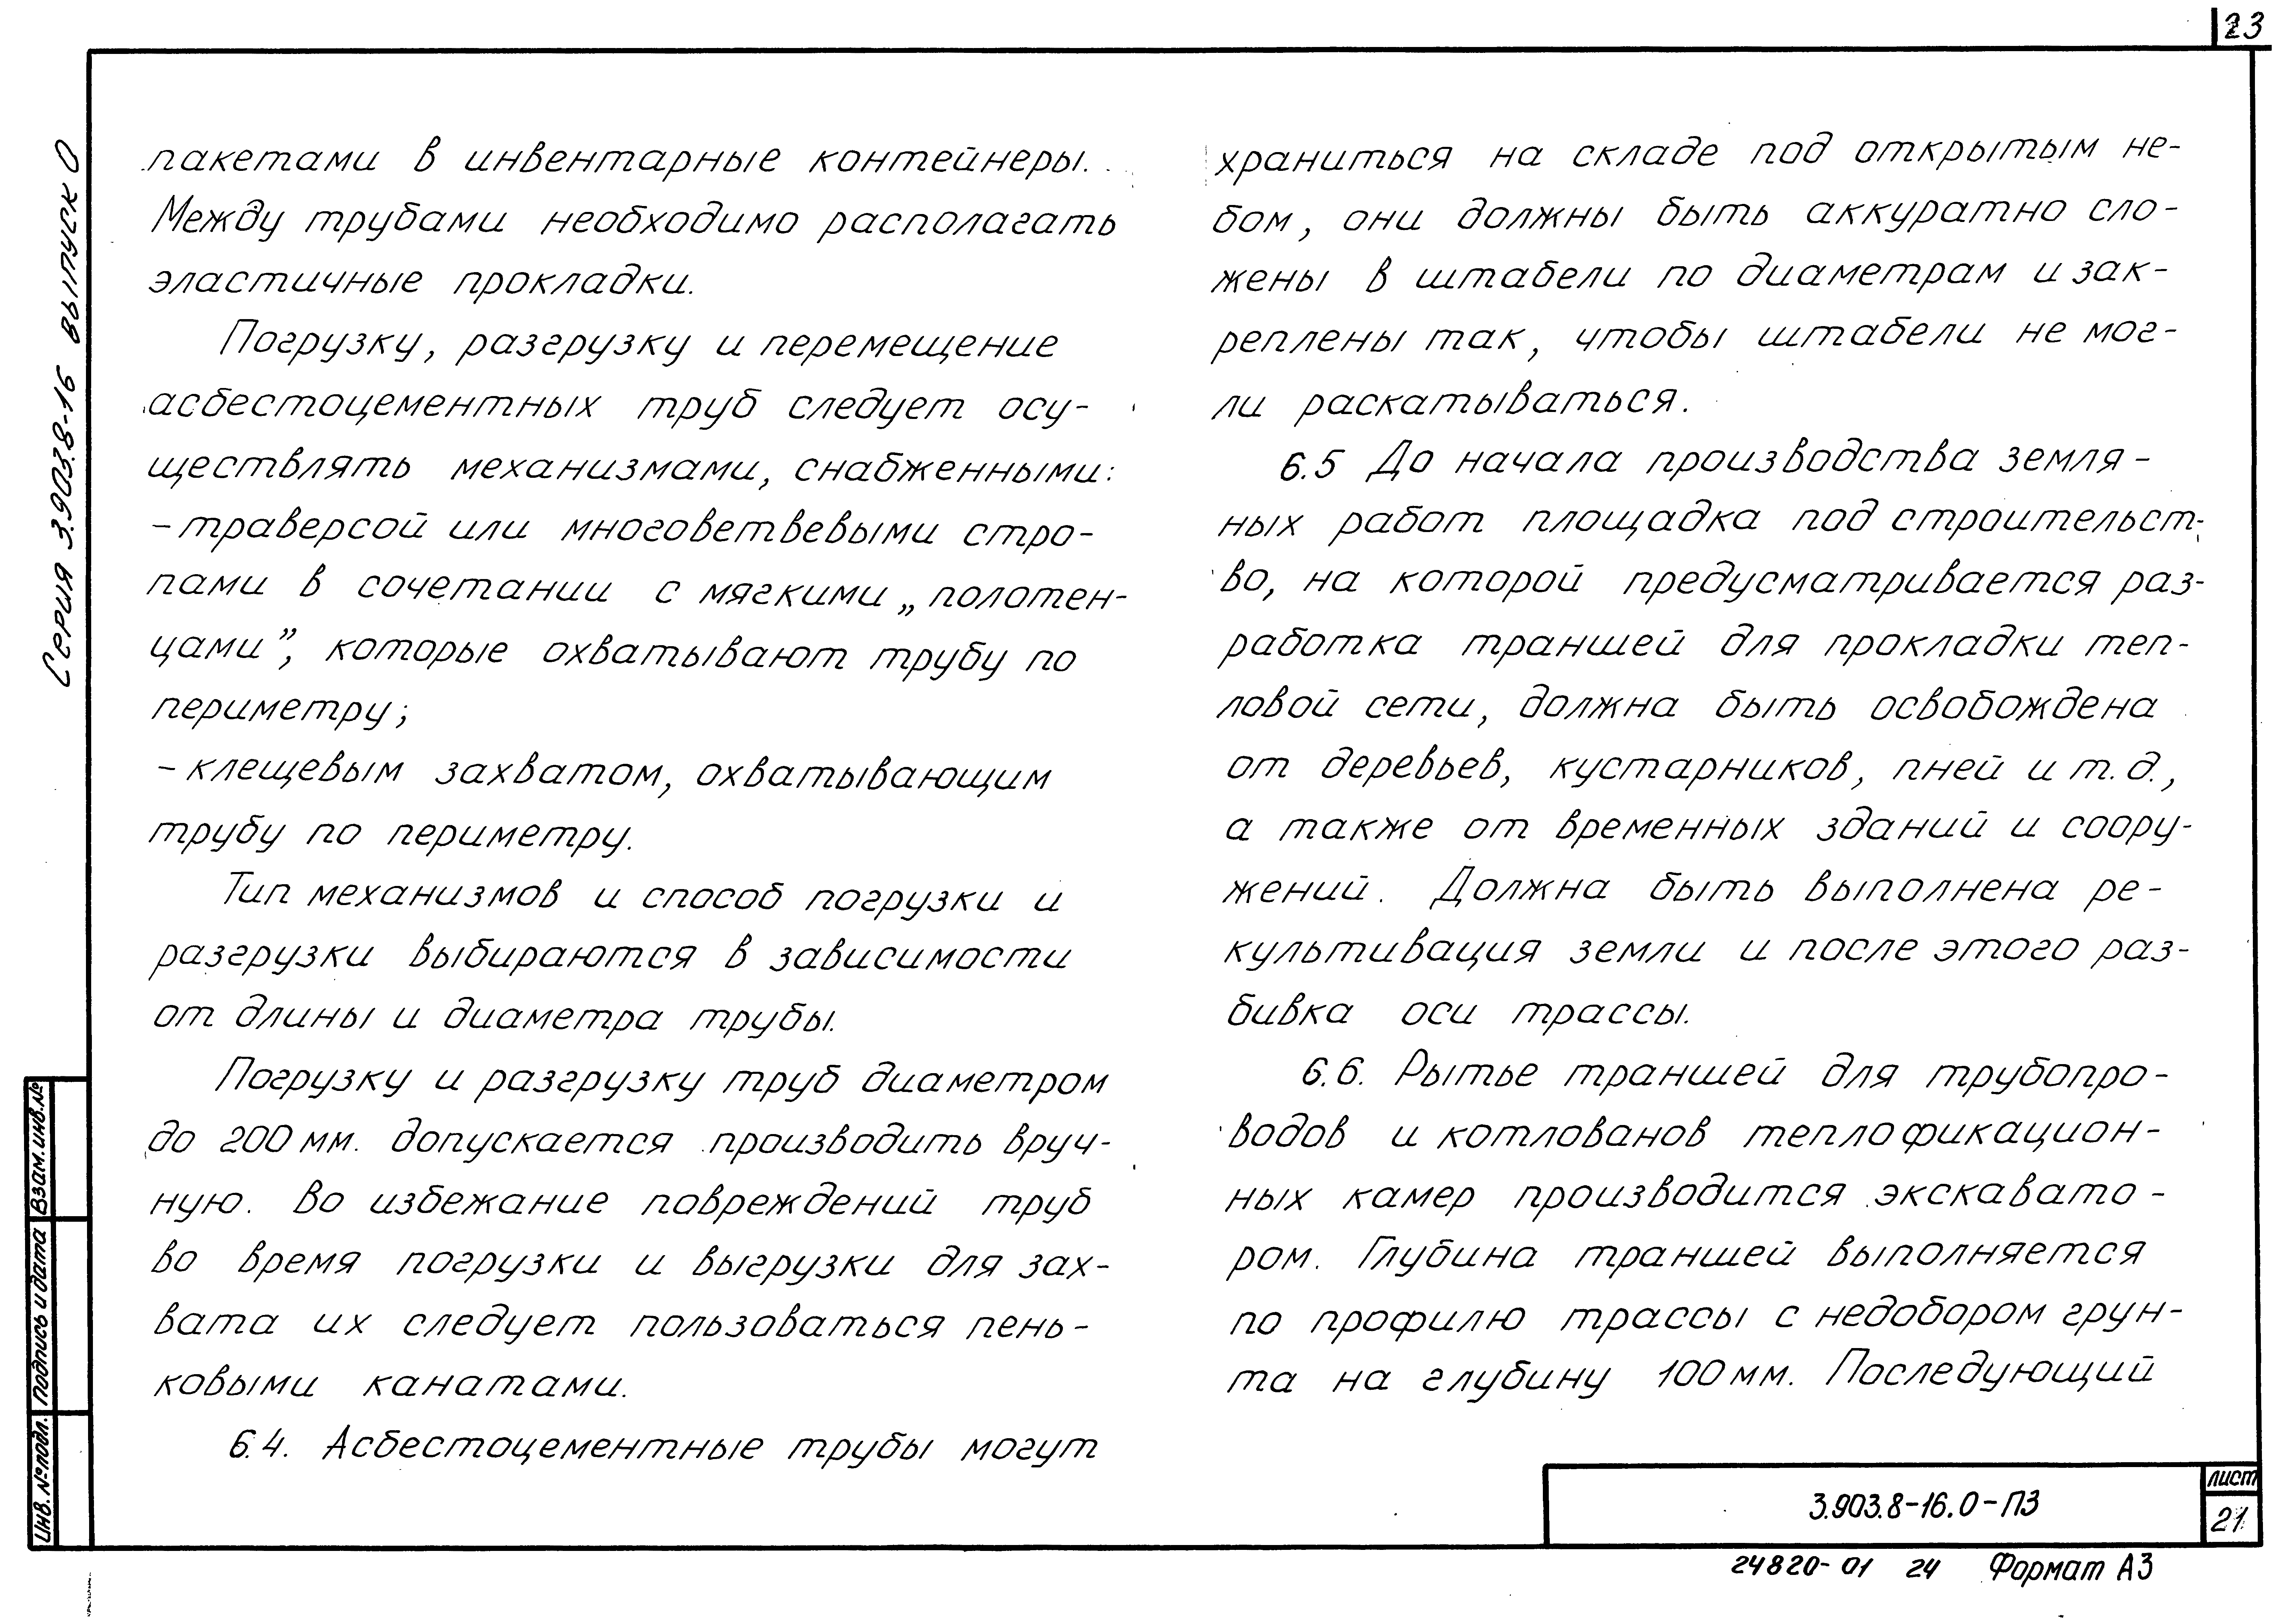 23
Серия 3.903.8-16 выпуск 0
пакетами в инвентарные контейнеры.
Между трубами необходимо располагать
эластичные прокладки.
Погрузку, разгрузку и перемещение
асбестоцементных труб следует осу-
ществлять механизмами, снабженными:
- траверсой или многоветвевыми стро-
пами в сочетании с мягкими „полотен-
цами”, которые охватывают трубу по
периметру;
- клещевым захватом, охватывающим
трубу по периметру.
Тип механизмов и способ погрузки и
разгрузки выбираются в зависимости
от длины и диаметра трубы.
Погрузку и разгрузку труб диаметром
до 200 мм. допускается производить вруч-
ную. Во избежание повреждений труб
во время погрузки и выгрузки для зах-
вата их следует пользоваться пень-
ковыми канатами.
6.4. Асбестоцементные трубы могут
храниться на складе под открытым не-
бом, они должны быть аккуратно сло-
жены в штабели по диаметрам и зак-
реплены так, чтобы штабели не мог-
ли раскатываться.
6.5 До начала производства земля-
ных работ площадка под строительст-
во, на которой предусматривается раз-
работка траншей для прокладки теп-
ловой сети, должна быть освобождена
от деревьев, кустарников, пней и т.д.,
а также от временных зданий и соору-
жений. Должна быть выполнена ре-
культивация земли и после этого раз-
бивка оси трассы.
6.6. Рытье траншей для трубопро-
водов и котлованов теплофикацион-
ных камер производится экскавато-
ром. Глубина траншей выполняется
по профилю трассы с недобором грун-
та на глубину 100 мм. Последующий
Инв. № подл. Подпись и дата Взам. инв. №
3.903.8-16.0-ПЗ
лист
21
24820-01 24 Формат А3